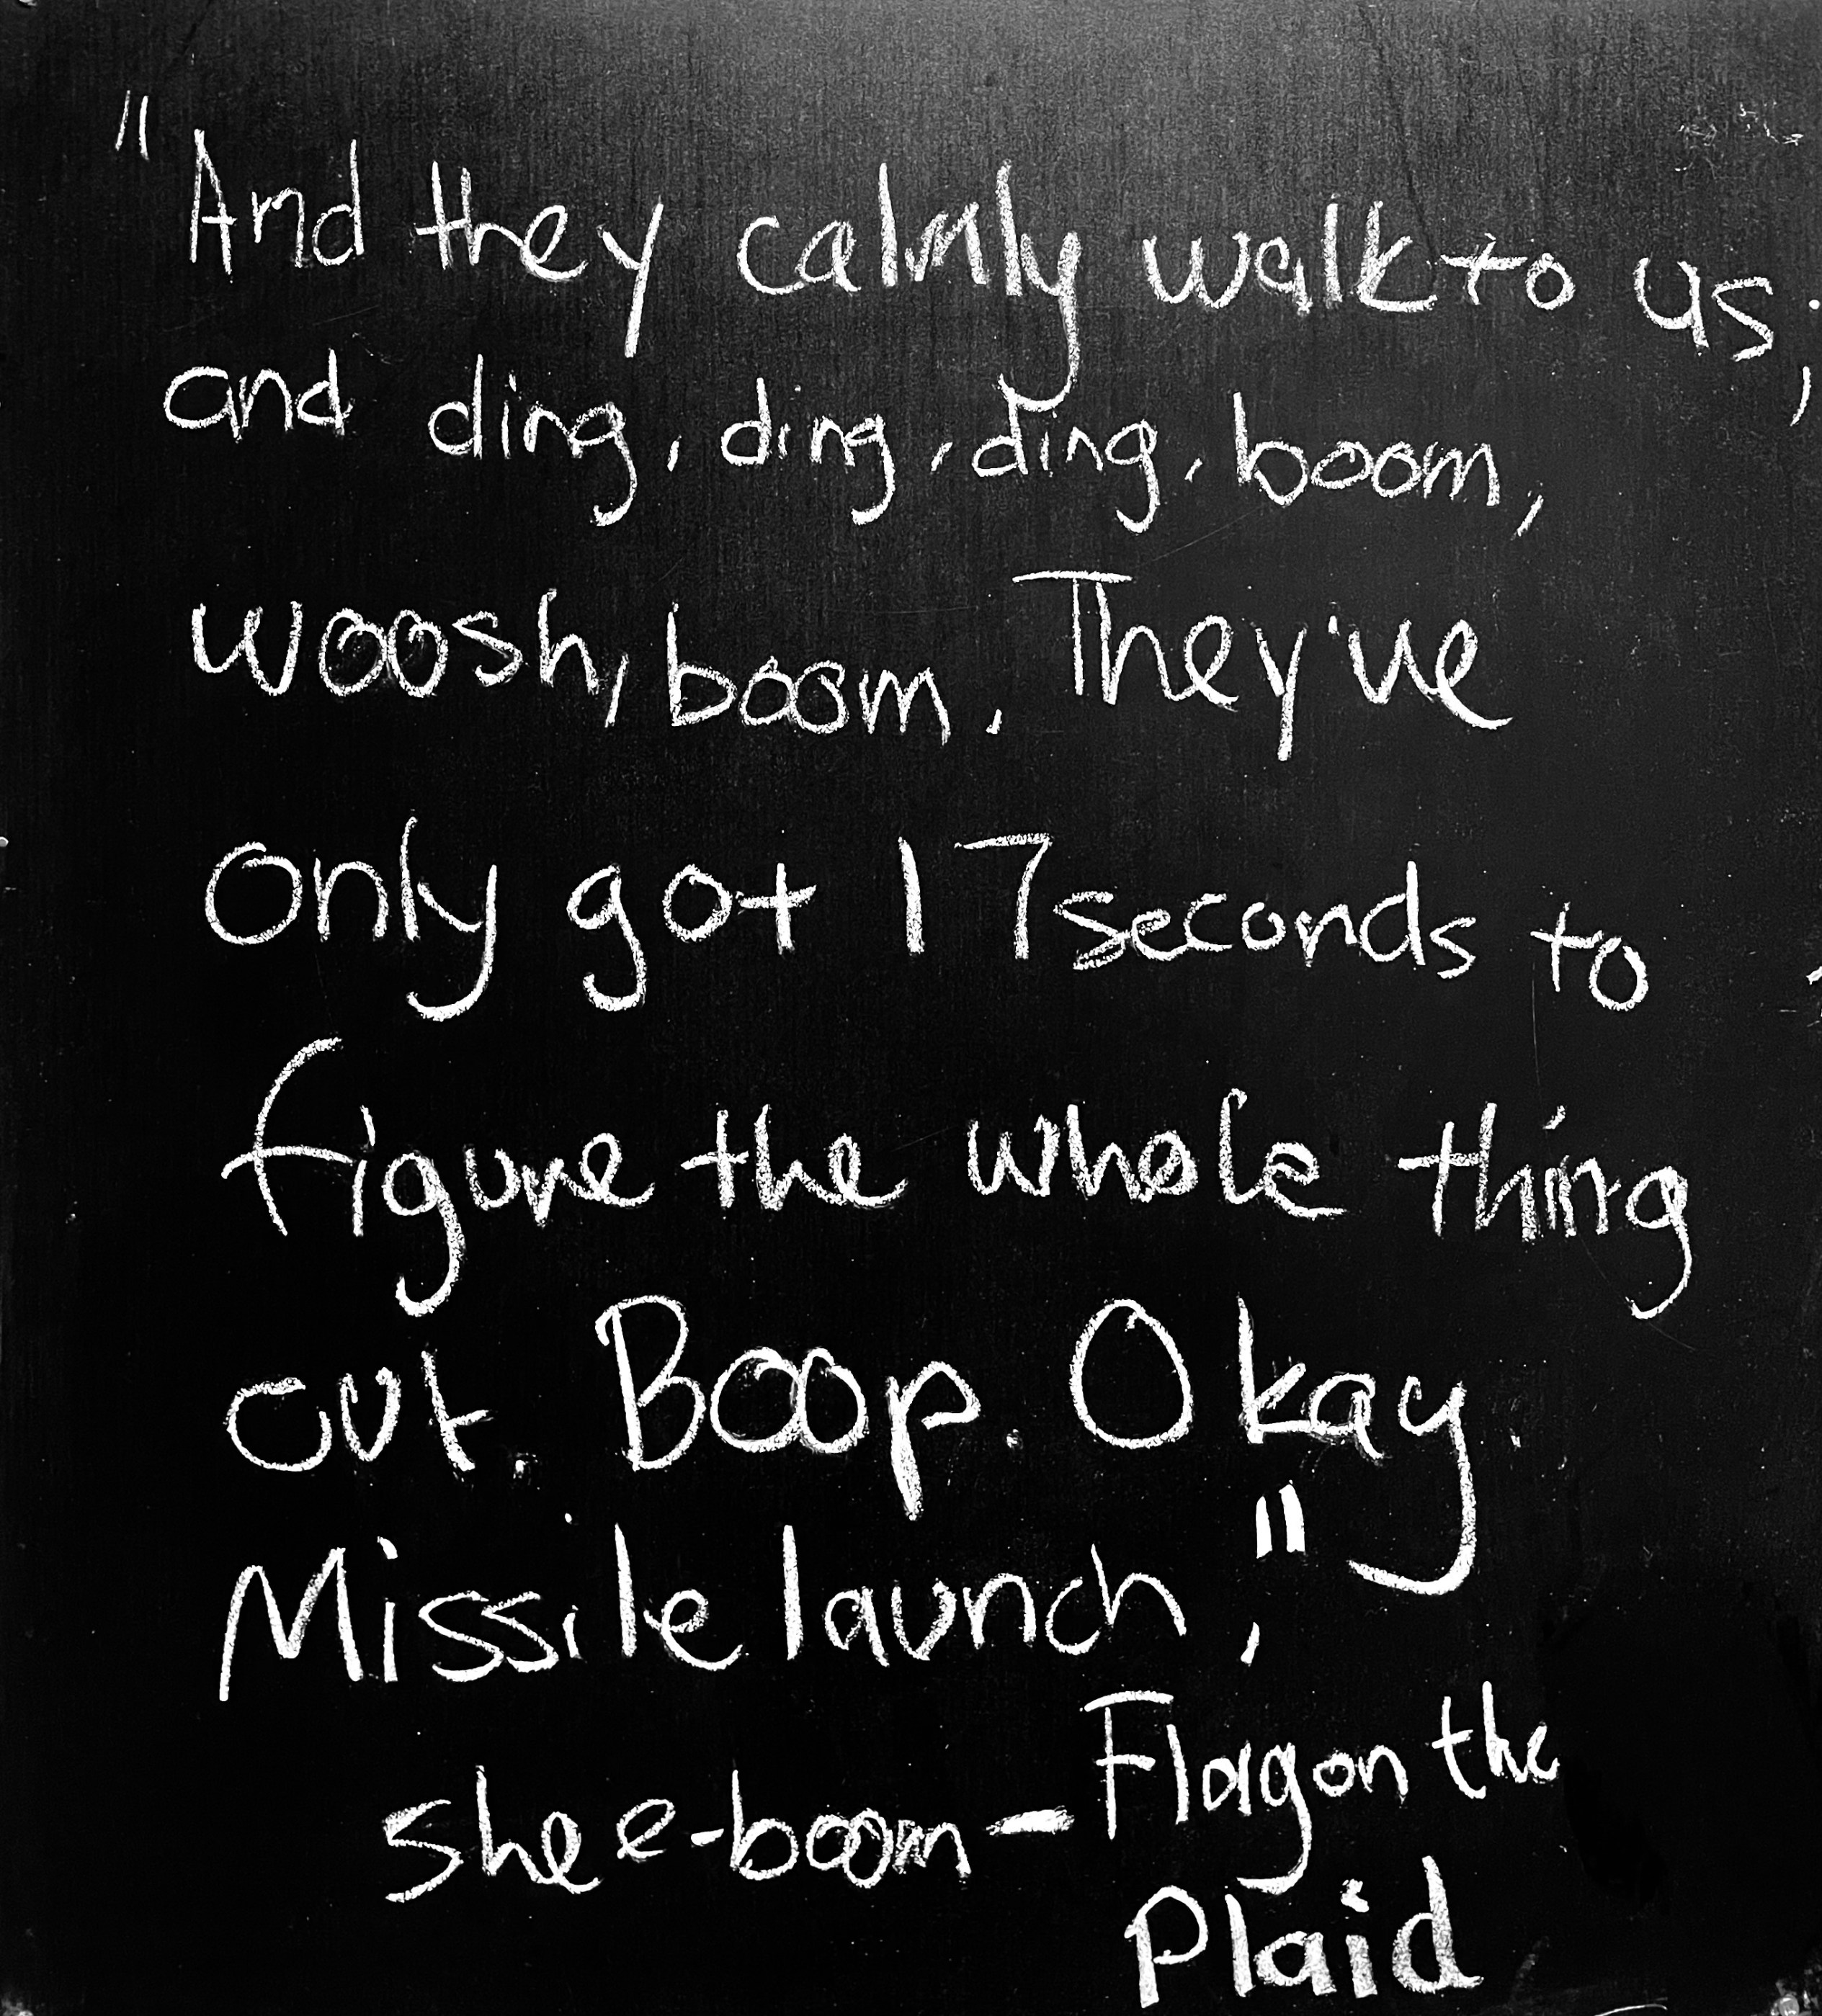 "And they calmly walk to us;
and ding, ding, ding, boom,
woosh, boom. They've
only got 17 seconds to
figure the whole thing
out. Boop. Okay.
Missile launch,"
shee-boom - Florgon the
Plaid